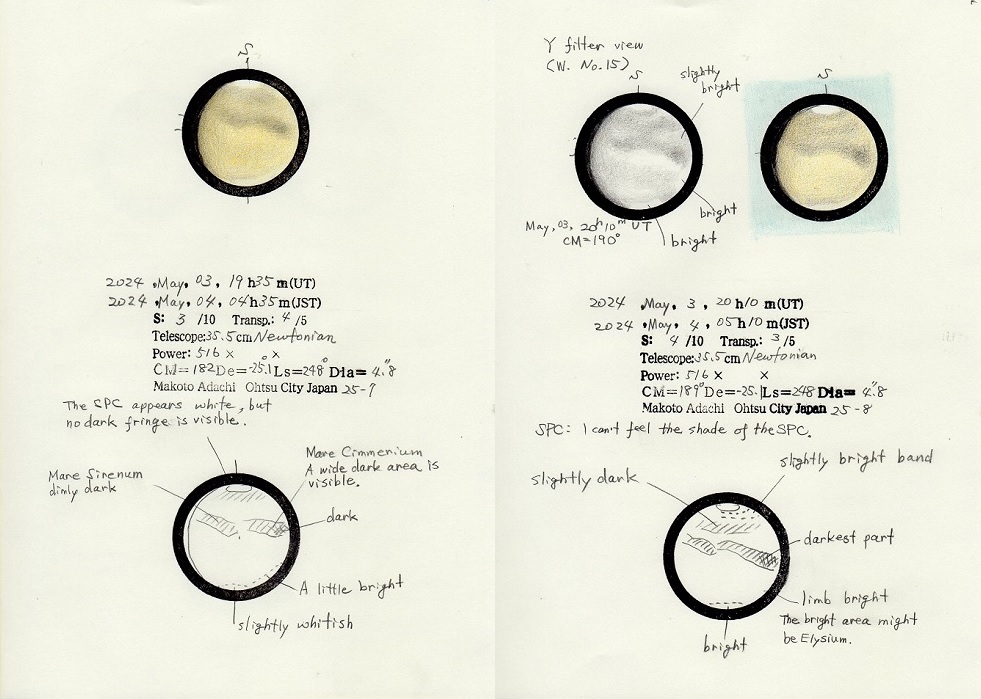 S
2024 May. 03, 19 h35 m(UT)
2024 May. 04, 04h35 m(JST)
S: 3 /10 Transp.: 4 /5
Telescope:35.5cm Newtonian
Power: 516 × ×
CM=182° De=-25.1 Ls=248° Dia= 4".8
Makoto Adachi Ohtsu City Japan 25-7
The SPC appears white, but
no dark fringe is visible.
Mare Cimmerium
A wide dark area is
visible.
Mare Sirenum
dimly dark
dark
A little bright
slightly whitish
Y filter view
(W. No.15)
S
slightly
bright
S
bright
bright
May, 03, 20h10m UT
CM=190°
2024 May. 3, 20 h10 m(UT)
2024 May. 4, 05h10 m(JST)
S: 4 /10 Transp.: 3 /5
Telescope:35.5cm Newtonian
Power: 516 × ×
CM=189° De=-25.1 Ls=248 Dia= 4".8
Makoto Adachi Ohtsu City Japan 25-8
SPC: I can't feel the shade of the SPC.
slightly bright band
slightly dark
darkest part
limb bright
The bright area might
be Elysium.
bright